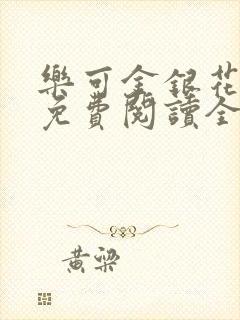 樂可金銀花
免費閱讀全
黃梁